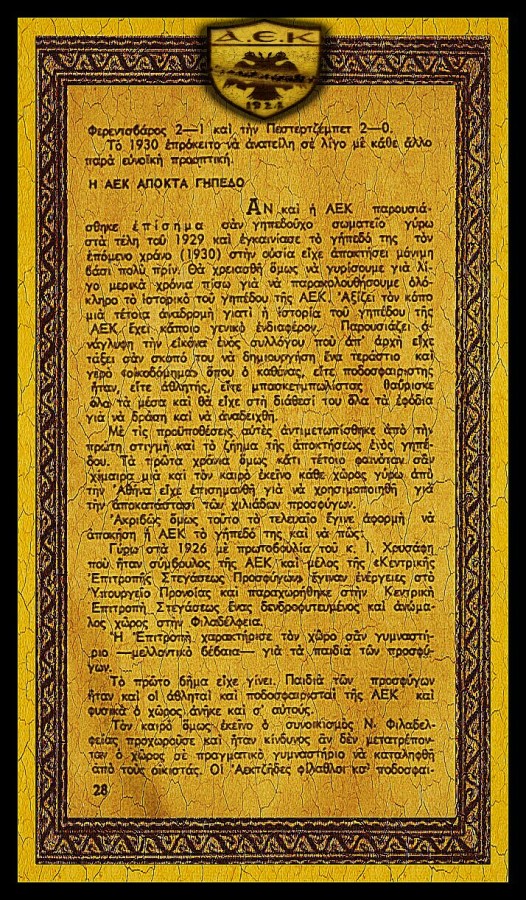 Α.Ε.Κ
1924
Φερεντσβάρος 2—1 καὶ τὴν Πεστερτζέμπετ 2—0.
Τὸ 1930 ἐπρόκειτο νὰ ἀνατείλη σὲ λίγο μὲ κάθε ἄλλο
παρὰ εὐνοϊκὴ προοπτική.
Η ΑΕΚ ΑΠΟΚΤΑ ΓΗΠΕΔΟ
ΑΝ καὶ ἡ ΑΕΚ παρουσιά-
σθηκε ἐπίσημα σὰν γηπεδοῦχο σωματεῖο γύρω
στὰ τέλη τοῦ 1929 καὶ ἐγκαινίασε τὸ γήπεδό της τὸν
ἑπόμενο χρόνο (1930) στὴν οὐσία εἶχε ἀποκτήσει μόνιμη
βάσι πολὺ πρίν. Θὰ χρειασθῆ ὅμως νὰ γυρίσουμε γιὰ λί-
γο μερικὰ χρόνια πίσω γιὰ νὰ παρακολουθήσουμε ὁλό-
κληρο τὸ ἱστορικὸ τοῦ γηπέδου τῆς ΑΕΚ. Ἀξίζει τὸν κόπο
μιὰ τέτοια ἀναδρομὴ γιατὶ ἡ ἱστορία τοῦ γηπέδου τῆς
ΑΕΚ ἔχει κάποιο γενικὸ ἐνδιαφέρον. Παρουσιάζει ἀ-
νάγλυφη τὴν εἰκόνα ἑνὸς συλλόγου ποὺ ἀπ' ἀρχὴ εἶχε
τάξει σὰν σκοπό του νὰ δημιουργήση ἕνα τεράστιο καὶ
γερὸ «οἰκοδόμημα» ὅπου ὁ καθένας, εἴτε ποδοσφαιριστὴς
ἦταν, εἴτε ἀθλητής, εἴτε μπασκετμπωλίστας θαὔρισκε
ὅλα τὰ μέσα καὶ θὰ εἶχε στὴ διάθεσί του ὅλα τὰ ἐφόδια
γιὰ νὰ δράση καὶ νὰ ἀναδειχθῆ.
Μὲ τὶς προϋποθέσεις αὐτὲς ἀντιμετωπίσθηκε ἀπὸ τὴν
πρώτη στιγμὴ καὶ τὸ ζήτημα τῆς ἀποκτήσεως ἑνὸς γηπέ-
δου. Τὰ πρῶτα χρόνια ὅμως κάτι τέτοιο φαινόταν σὰν
χίμαιρα μιὰ καὶ τὸν καιρὸ ἐκεῖνο κάθε χῶρος γύρω ἀπὸ
τὴν Ἀθήνα εἶχε ἐπισημανθῆ γιὰ νὰ χρησιμοποιηθῆ γιὰ
τὴν ἀποκατάστασι τῶν χιλιάδων προσφύγων.
Ἀκριβῶς ὅμως τοῦτο τὸ τελευταῖο ἔγινε ἀφορμὴ νὰ
ἀποκτήση ἡ ΑΕΚ τὸ γήπεδό της καὶ νὰ πῶς:
Γύρω στὰ 1926 μὲ πρωτοβουλία τοῦ κ. Ι. Χρυσάφη
ποὺ ἦταν σύμβουλος τῆς ΑΕΚ καὶ μέλος τῆς «Κεντρικῆς
Ἐπιτροπῆς Στεγάσεως Προσφύγων» ἔγιναν ἐνέργειες στὸ
Ὑπουργεῖο Προνοίας καὶ παραχωρήθηκε στὴν Κεντρικὴ
Ἐπιτροπὴ Στεγάσεως ἕνας δενδροφυτευμένος καὶ ἀνώμα-
λος χῶρος στὴν Φιλαδέλφεια.
Ἡ Ἐπιτροπὴ χαρακτήρισε τὸν χῶρο σὰν γυμναστή-
ριο —μελλοντικὸ βέβαια— γιὰ τὰ παιδιὰ τῶν προσφύ-
γων.
Τὸ πρῶτο βῆμα εἶχε γίνει. Παιδιὰ τῶν προσφύγων
ἦταν καὶ οἱ ἀθληταὶ καὶ ποδοσφαιρισταὶ τῆς ΑΕΚ καὶ
φυσικὰ ὁ χῶρος ἀνῆκε καὶ σ' αὐτούς.
Τὸν καιρὸ ὅμως ἐκεῖνο ὁ συνοικισμὸς Ν. Φιλαδελ-
φείας προχωροῦσε καὶ ἦταν κίνδυνος ἂν δὲν μετατρέπον-
ταν ὁ χῶρος σὲ πραγματικὸ γυμναστήριο νὰ καταληφθῆ
ἀπὸ τοὺς οἰκιστάς. Οἱ Ἀεκτζῆδες φίλαθλοι καὶ ποδοσφαι-
28